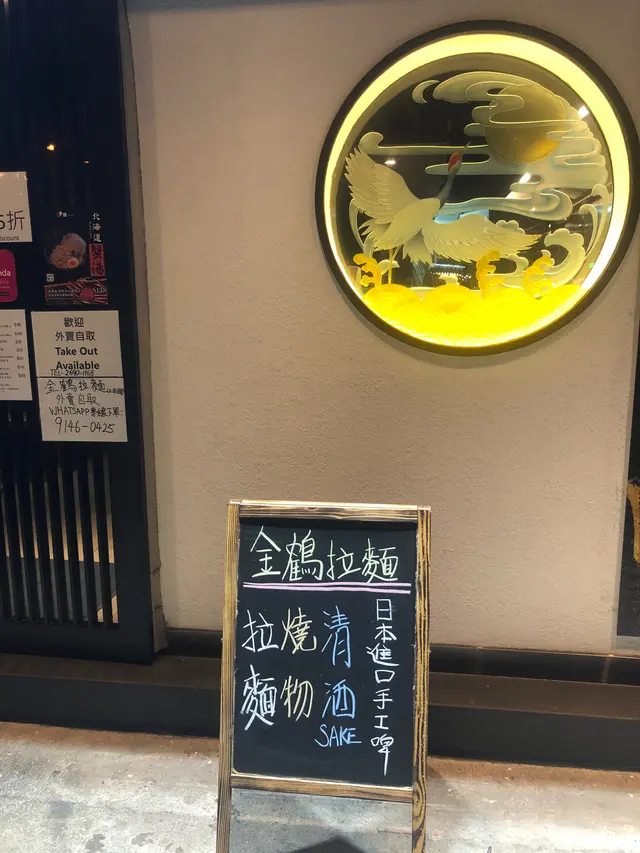 5折
discount
北海道
蟹湯
歡迎
外賣自取
Take Out
Available
TEL-2690-1168
金鶴拉麵
外賣自取
WHATSAPP專線下單:
9146-0425
金鶴拉麵
拉麵
燒物
清酒
SAKE
日本進口手工啤